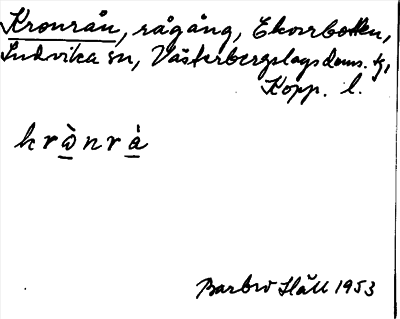 Kronrån, rågång, Ekorrbotten,
Ludvika sn, Västerbergslags doms. tg,
Kopp. l.
krònrá
Barbro Häll 1953